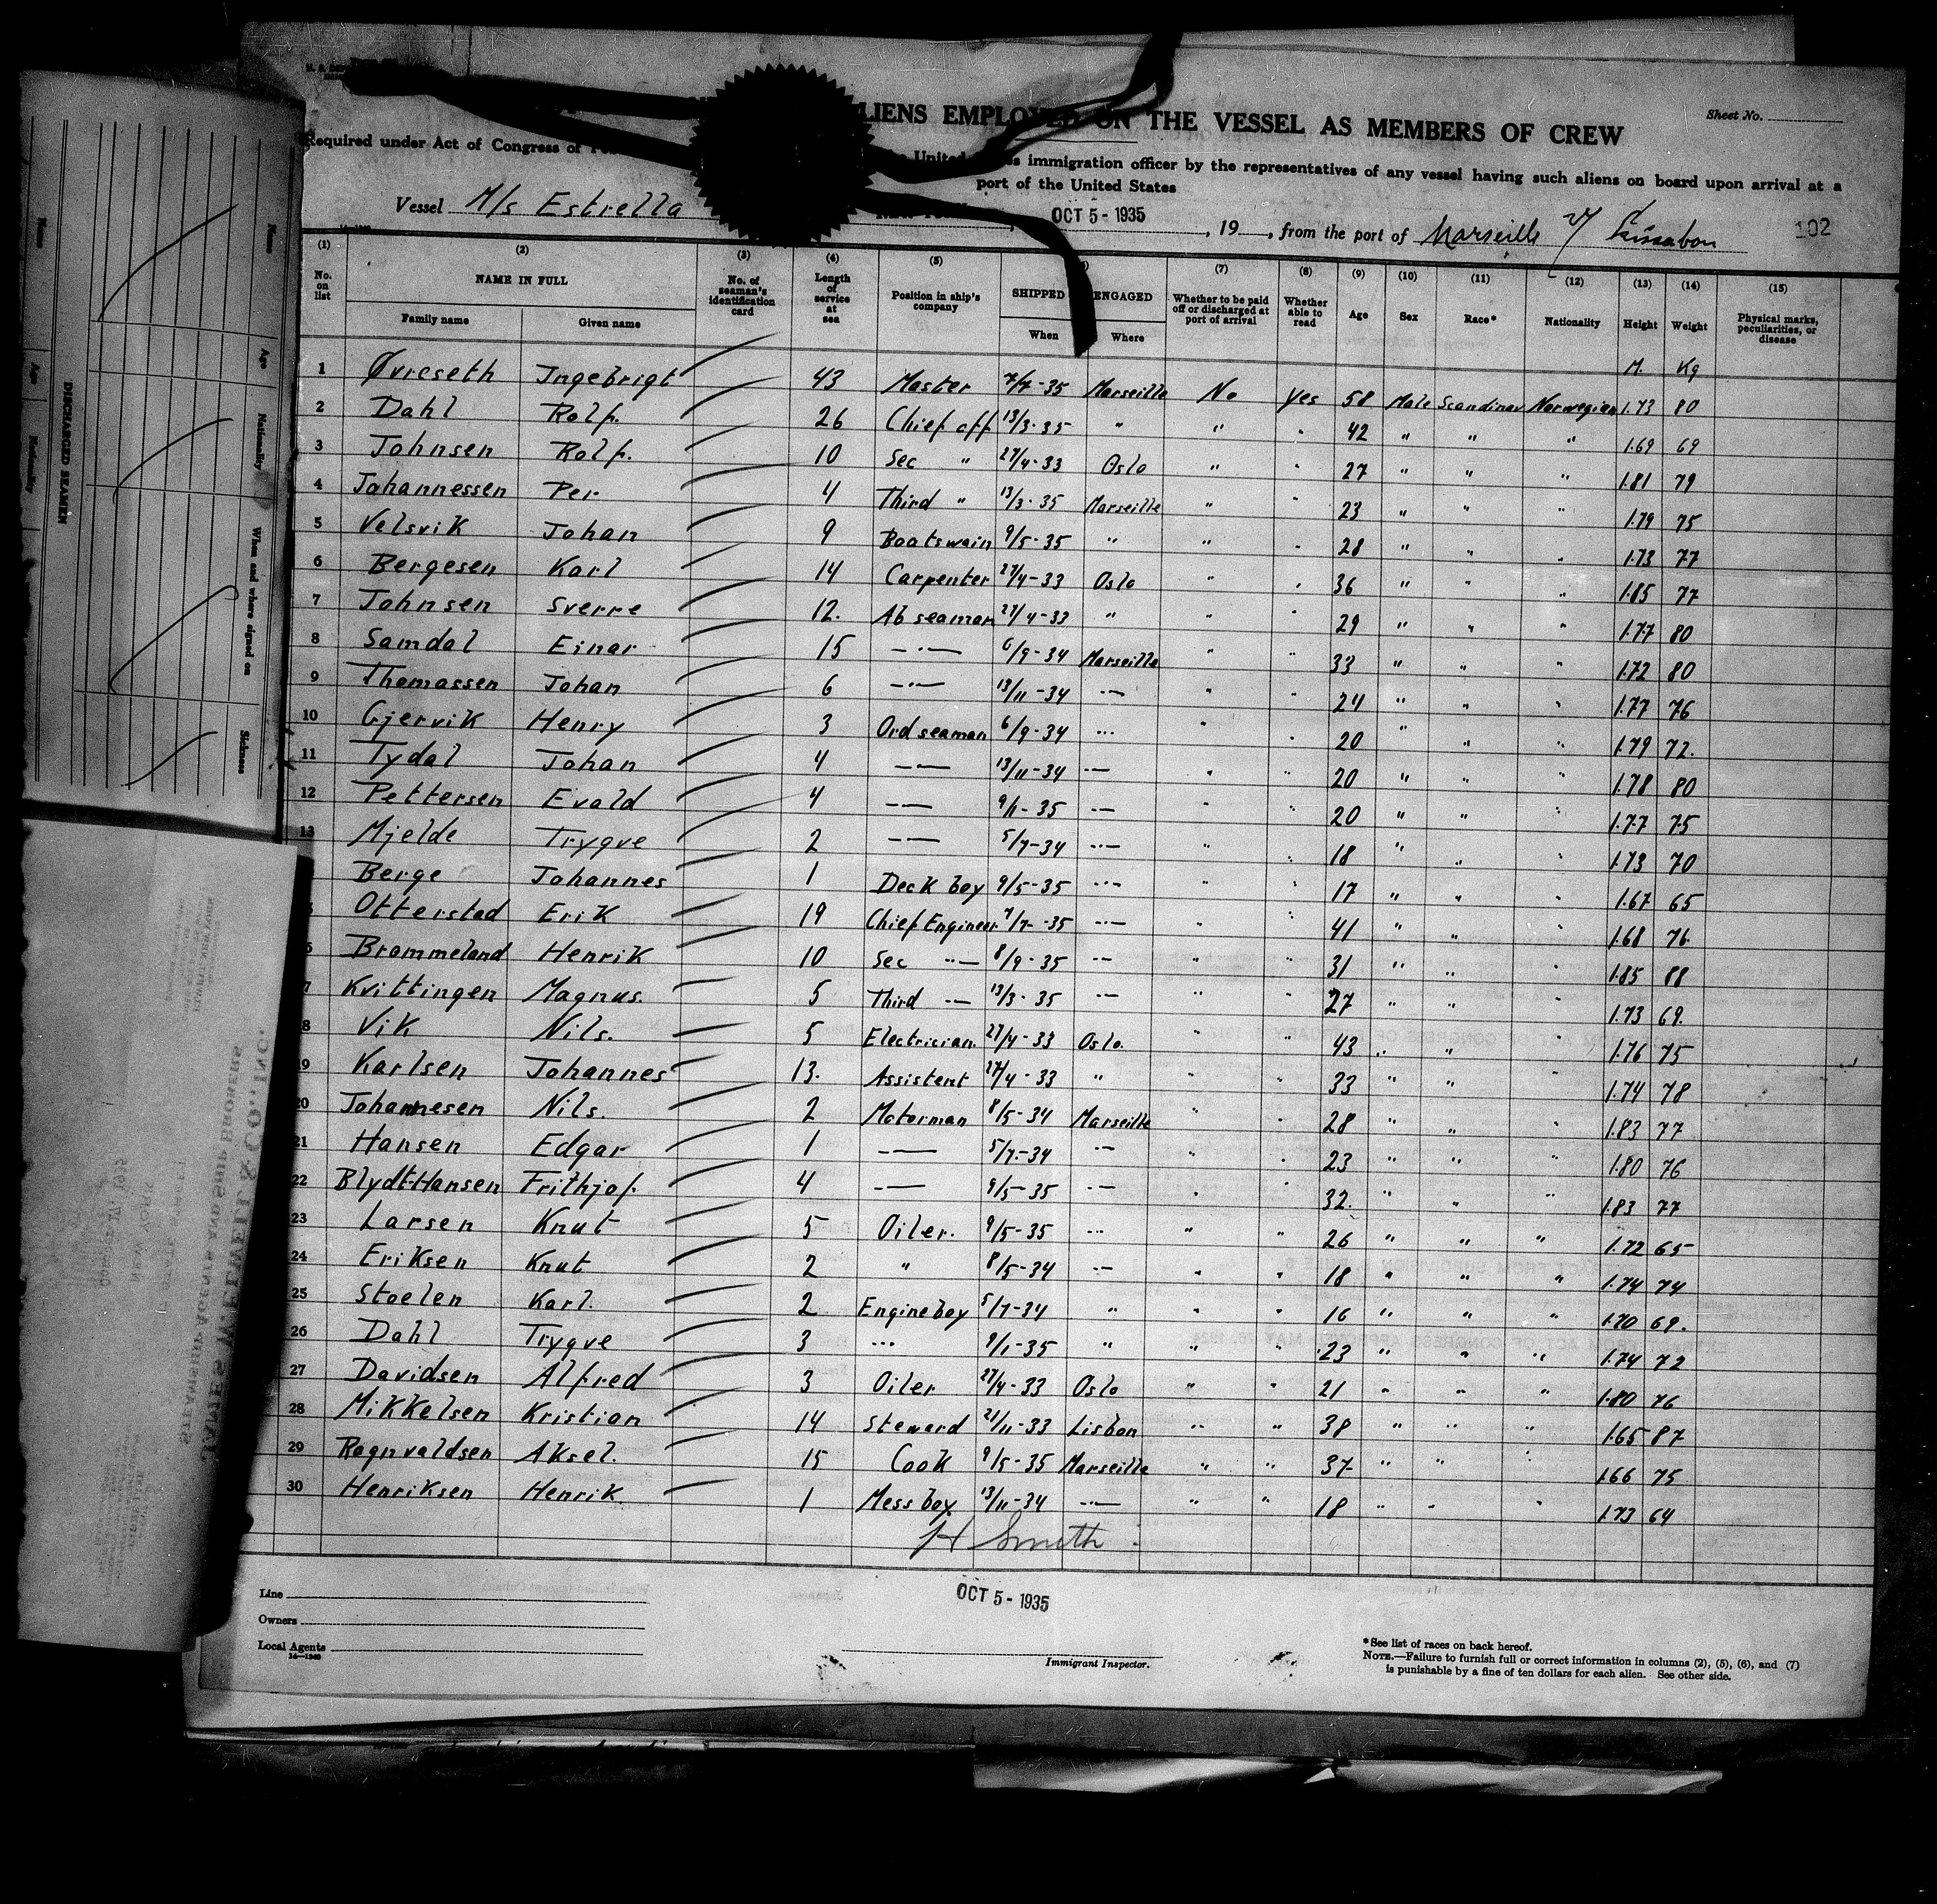 LIENS EMPLOYED ON THE VESSEL AS MEMBERS OF CREW
Sheet No.
Required under Act of Congress of
United States immigration officer by the representatives of any vessel having such aliens on board upon arrival at a
port of the United States
Vessel M/s Estrella OCT 5 - 1935, 19 , from the port of Marseille 102
(1) (2) (3) (4) (5) (7) (8) (9) (10) (11) (12) (13) (14) (15)
No. on list NAME IN FULL No. of seaman's identification card Length of service at sea Position in ship's company SHIPPED ENGAGED Whether to be paid off or discharged at port of arrival Whether able to read Age Sex Race* Nationality Height Weight Physical marks, peculiarities, or disease
Family name Given name When Where
M. Kg
1 Øvreseth Ingebrigt 43 Master 7/7-35 Marseille No Yes 58 Male Scandinav Norwegian 1.73 80
2 Dahl Rolf. 26 Chief off 13/3-35 " " " 42 " " " 1.69 69
3 Johnsen Rolf. 10 Sec " 27/4-33 Oslo " " 27 " " " 1.81 79
4 Johannessen Per 4 Third " 13/3-35 Marseille " " 23 " " " 1.79 75
5 Velsvik Johan 9 Boatswain 9/5-35 " " " 28 " " " 1.73 77
6 Bergesen Karl 14 Carpenter 27/4-33 Oslo " " 36 " " " 1.85 77
7 Johnsen Sverre 12. Ab seaman 27/4-33 " " " 29 " " " 1.77 80
8 Samdal Einar 15 -"- 6/9-34 Marseille " " 33 " " " 1.72 80
9 Thomassen Johan 6 -"- 13/11-34 -"- " " 24 " " " 1.77 76
10 Gjervik Henry 3 Ord seaman 6/9-34 -"- " " 20 " " " 1.79 72.
11 Tydal Johan 4 -"- 13/11-34 -"- " " 20 " " " 1.78 80
12 Pettersen Evald 4 -"- 9/1-35 -"- " " 20 " " " 1.77 75
13 Mjelde Trygve 2 -"- 5/7-34 -"- " " 18 " " " 1.73 70
Berge Johannes 1 Deck boy 9/5-35 -"- " " 17 " " " 1.67 65
Otterstad Erik 19 Chief Engineer 7/7-35 -"- " " 41 " " " 1.68 76
Brommeland Henrik 10 Sec -"- 8/9-35 -"- " " 31 " " " 1.85 88
7 Kvittingen Magnus. 5 Third -"- 13/3-35 -"- " " 27 " " " 1.73 69.
8 Vik Nils. 5 Electrician 27/4-33 Oslo. " " 43 " " " 1.76 75
19 Karlsen Johannes 13. Assistent 27/4-33 " " " 33 " " " 1.74 78
20 Johannesen Nils. 2 Motorman 8/5-34 Marseille " " 28 " " " 1.83 77
21 Hansen Edgar 1 -"- 5/7-34 -"- " " 23 " " " 1.80 76
22 Blydt-Hansen Frithjof. 4 -"- 9/5-35 -"- " " 32. " " " 1.83 77
23 Larsen Knut 5 Oiler. 9/5-35 -"- " " 26 " " " 1.72 65
24 Eriksen Knut 2 " 8/5-34 -"- " " 18 " " " 1.74 74
25 Stoelen Karl. 2 Engineboy 5/7-34 " " " 16 " " " 1.70 69.
26 Dahl Trygve 3 -"- 9/1-35 " " " 23 " " " 1.74 72
27 Davidsen Alfred 3 Oiler 27/4-33 Oslo " " 21 " " " 1.80 76
28 Mikkelsen Kristian 14 Steward 21/11-33 Lisbon " " 38 " " " 1.65 87
29 Ragnvaldsen Aksel. 15 Cook 9/5-35 Marseille " " 37 " " " 1.66 75
30 Henriksen Henrik 1 Mess boy. 13/11-34 -"- " " 18 " " " 1.73 64
H Smith
OCT 5 - 1935
Line
Owners
Local Agents
Immigrant Inspector.
*See list of races on back hereof.
NOTE.—Failure to furnish full or correct information in columns (2), (5), (6), and (7)
is punishable by a fine of ten dollars for each alien. See other side.
DISCHARGED SEAMEN
Name Age Nationality When and where signed on Sickness
Name Age Nationality
JAMES W. ELWELL & CO., INC.
STEAMSHIP AGENTS AND SHIP BROKERS